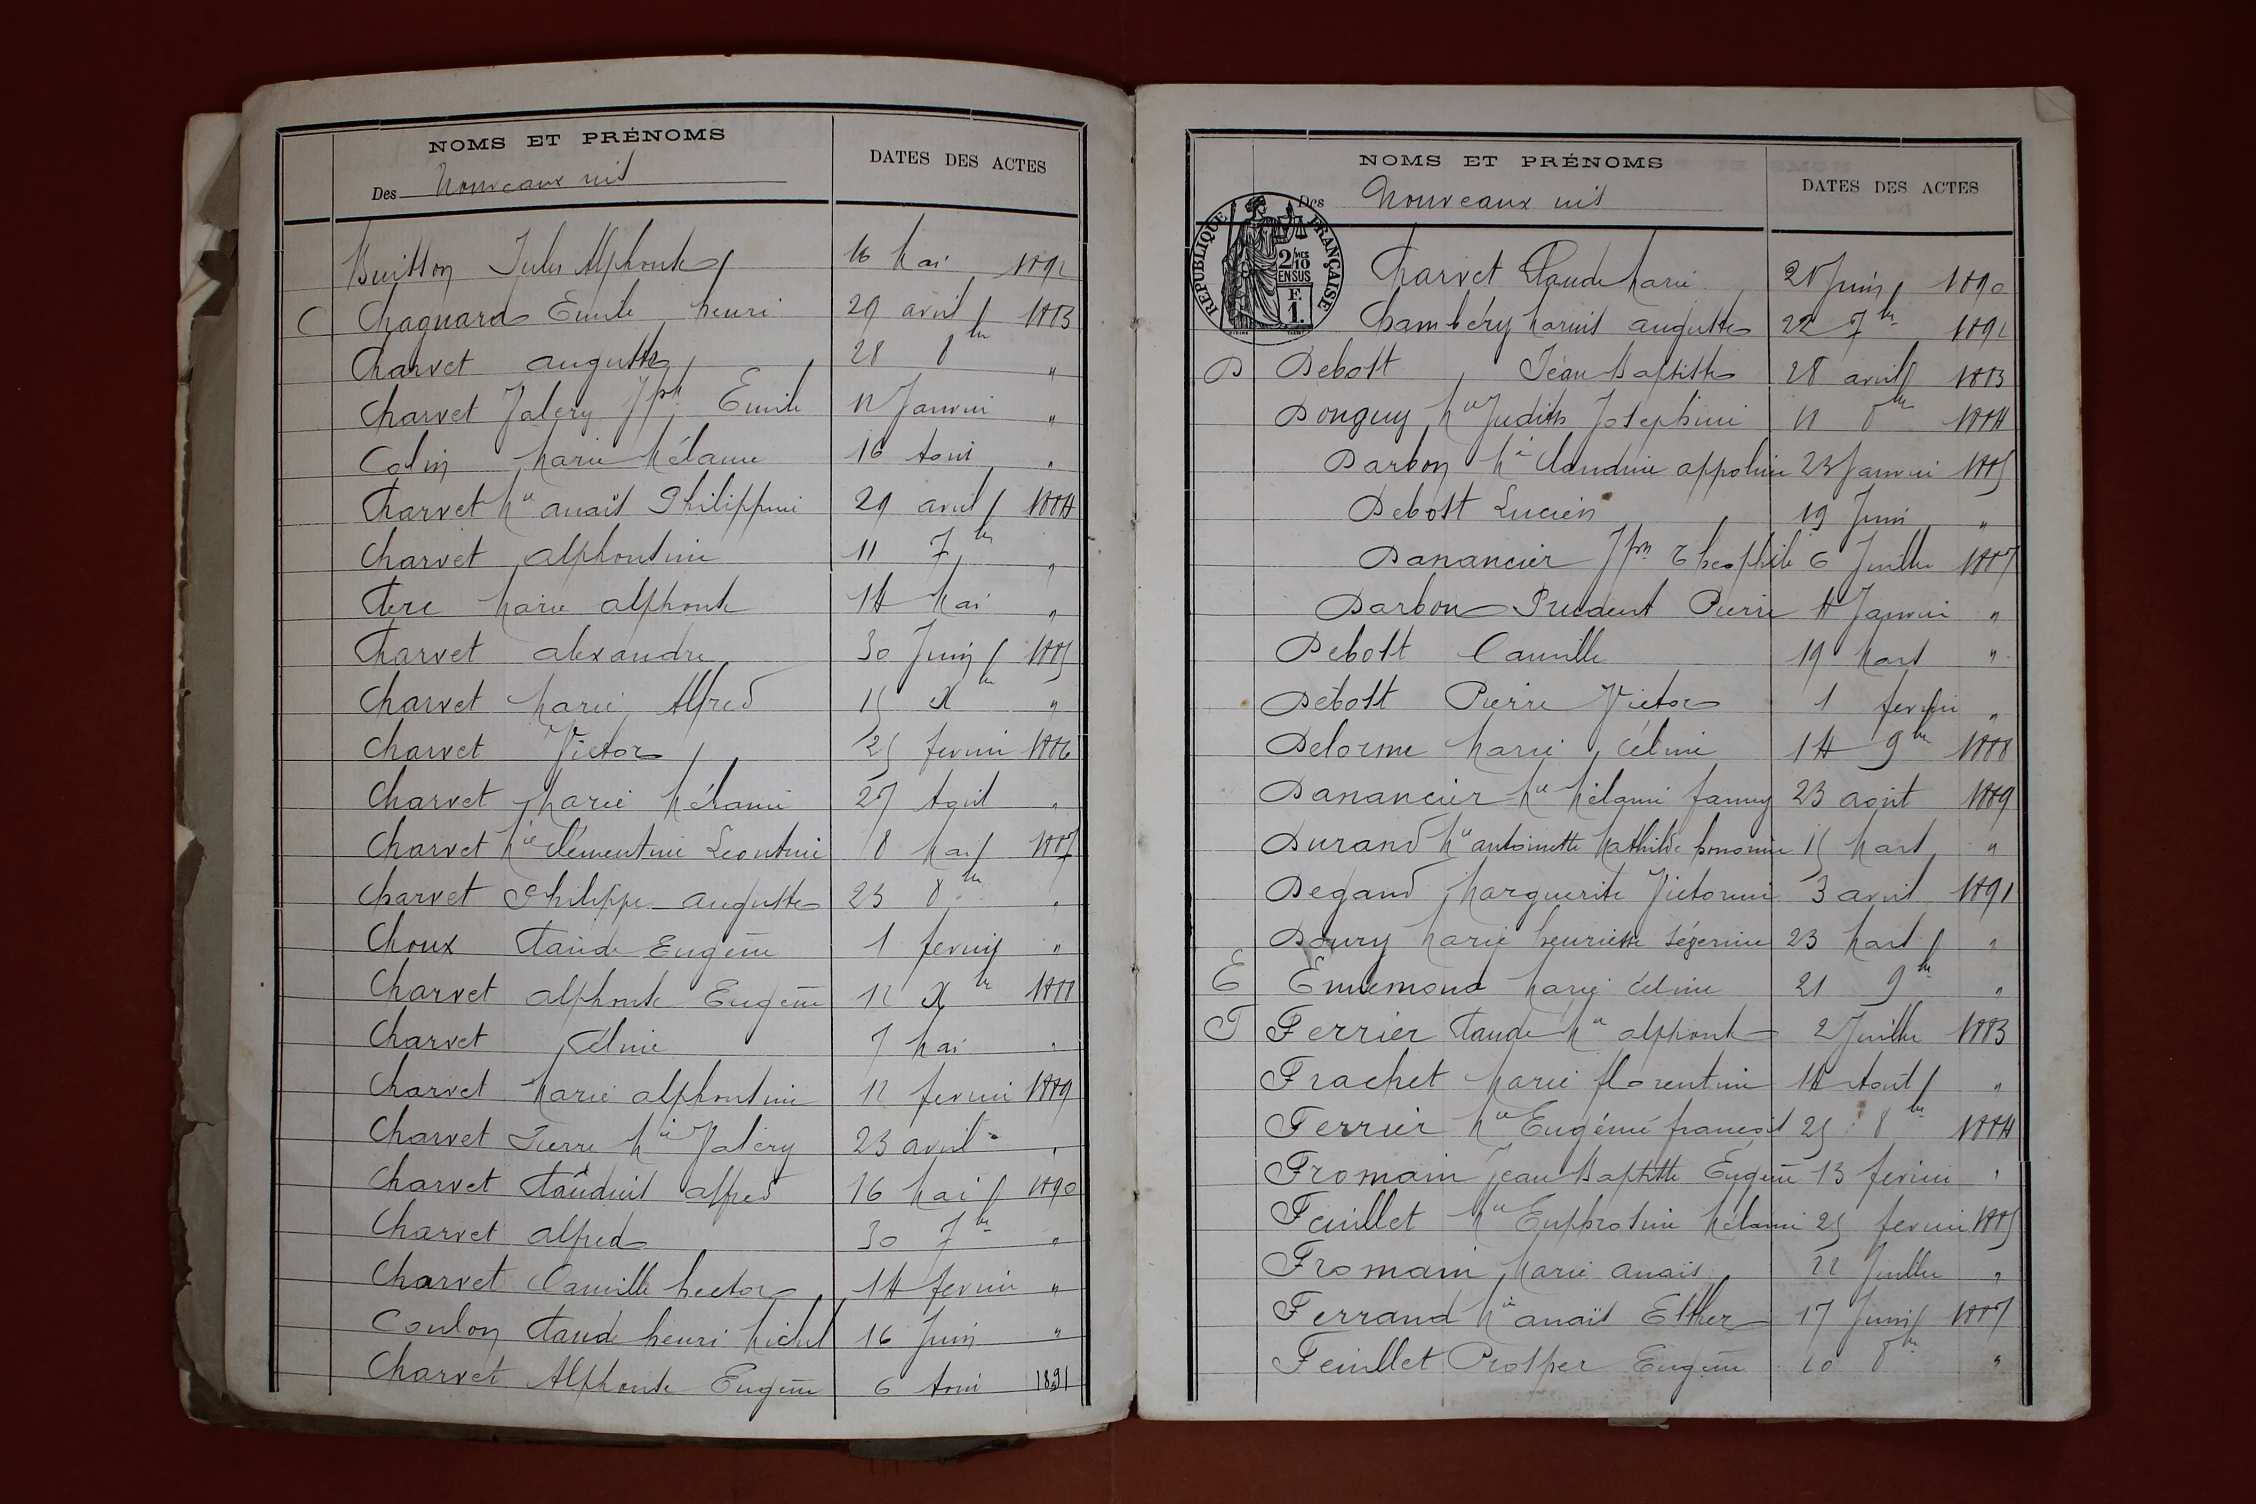 NOMS ET PRÉNOMS
DATES DES ACTES
Des Nouveaux nés
Buisson Jules Alphonse 16 Mai 1892
C Chagnard Emile henri 29 avril 1883
Charvet auguste 28 8bre "
Charvet Valery Jph Emile 12 Janvier "
Colin Marie Mélanie 16 Aout "
Charvet Mie anaïs Philippine 29 avril 1884
Charvet alphonsine 11 7bre "
Clerc Marie alphonse 14 Mai "
Charvet alexandre 30 Juin 1885
Charvet Marie Alfred 15 Xbre "
Charvet Victor 25 fevrier 1886
Charvet Marie Mélanie 27 "
Charvet Mie Clémentine Leontine 8 Mai 1887
Charvet Philippe auguste 23 8bre "
Choux Claude Eugène 1 fevrier "
Charvet alphonse Eugène 12 Xbre 1888
Charvet Céline 7 Mai "
Charvet Marie alphonsine 12 fevrier 1889
Charvet Pierre Mie Valéry 23 avril "
Charvet Claudius alfred 16 Mai 1890
Charvet alfred 30 7bre "
Charvet Camille hector 14 fevrier "
Coulon Claude henri Michel 16 Juin "
Charvet Alphonse Eugène 6 Aout 1891
NOMS ET PRÉNOMS
DATES DES ACTES
Des Nouveaux nés
RÉPUBLIQUE FRANÇAISE
2/10 EN SUS
F. 1.
Charvet Claude Marie Juin 1890
Chambéry Marius auguste 22 7bre 1892
D Debost Jéan Baptiste 28 avril 1883
Donguy Mie Judith Josephine 11 8bre 1884
Darbon Mie Claudine appoline 23 Janvier 1885
Debost Lucien 19 Juin "
Danancier Jph Theophile 6 Juillet 1887
Darbon Prudent Pierre 4 Janvier "
Debost Camille 19 Mars "
Debost Pierre Victor 1 fevrier "
Delorme Marie Céline 14 9bre 1888
Danancier Mie Mélanie fanny 23 août 1889
Durand Mie antoinette Mathilde honorine 15 Mars "
Degand Marguerite Victorine 3 avril 1891
Doury Marie henriette Ségerine 23 Mars "
E Ennemond Marie Céline 21 9bre "
F Ferrier Claude Mie alphonse 2 Juillet 1883
Frachet Marie florentine 14 Août "
Ferrier Mie Eugénie françois 25 8bre 1884
Fromain Jean Baptiste Eugène 13 fevrier "
Feuillet Mie Euphrosine Mélanie 25 fevrier 1885
Fromain Marie anaïs 22 Juillet "
Ferrand Mie anaïs Esther 17 Juin 1887
Feuillet Prosper Eugène 10 8bre "